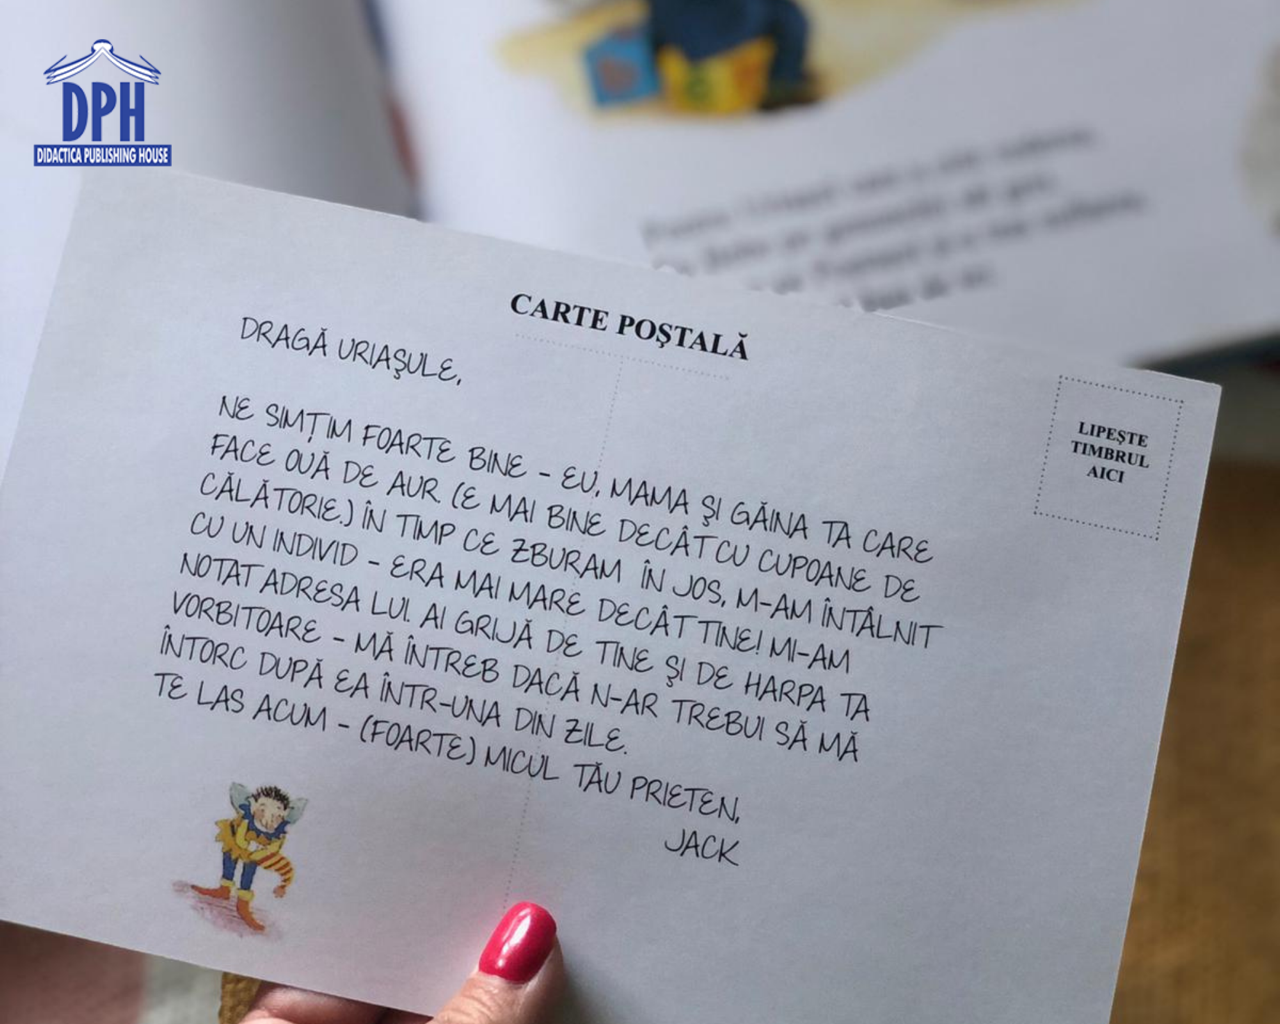 DPH
DIDACTICA PUBLISHING HOUSE
CARTE POŞTALĂ
LIPEŞTE
TIMBRUL
AICI
DRAGĂ URIAŞULE,
NE SIMŢIM FOARTE BINE – EU, MAMA ŞI GĂINA TA CARE
FACE OUĂ DE AUR (E MAI BINE DECÂT CU CUPOANE DE
CĂLĂTORIE.) ÎN TIMP CE ZBURAM ÎN JOS, M-AM ÎNTÂLNIT
CU UN INDIVID – ERA MAI MARE DECÂT TINE! MI-AM
NOTAT ADRESA LUI. AI GRIJĂ DE TINE ŞI DE HARPA TA
VORBITOARE – MĂ ÎNTREB DACĂ N-AR TREBUI SĂ MĂ
ÎNTORC DUPĂ EA ÎNTR-UNA DIN ZILE.
TE LAS ACUM – (FOARTE) MICUL TĂU PRIETEN,
JACK